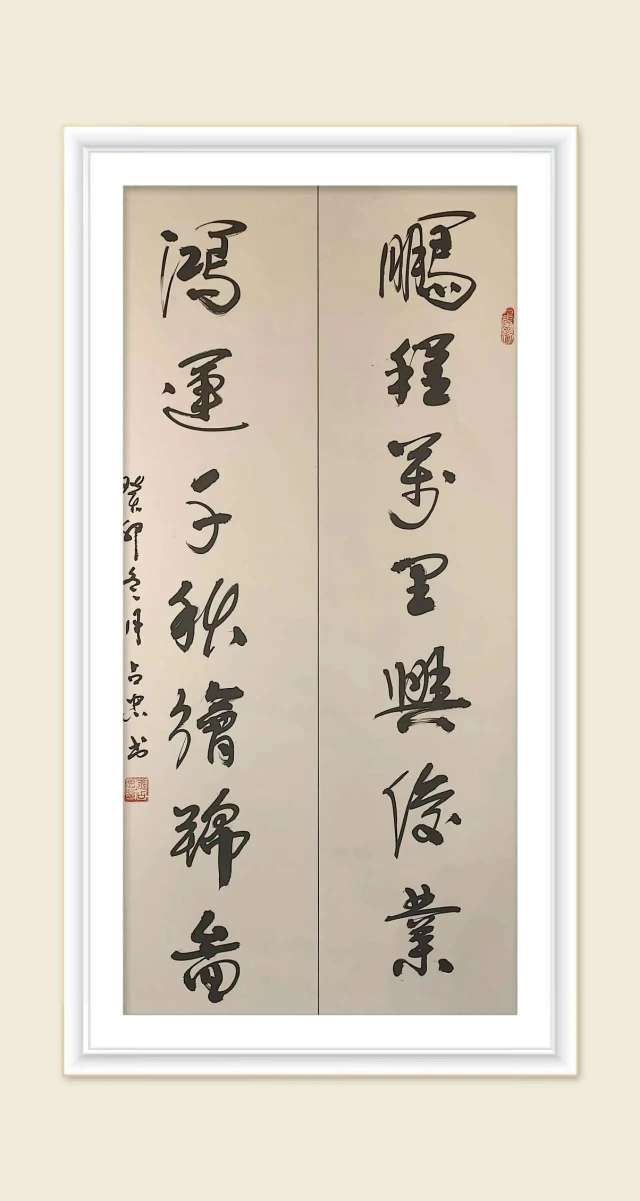 鵬程萬里興俊業
鴻運千秋繪錦圖
癸卯冬周占忠书